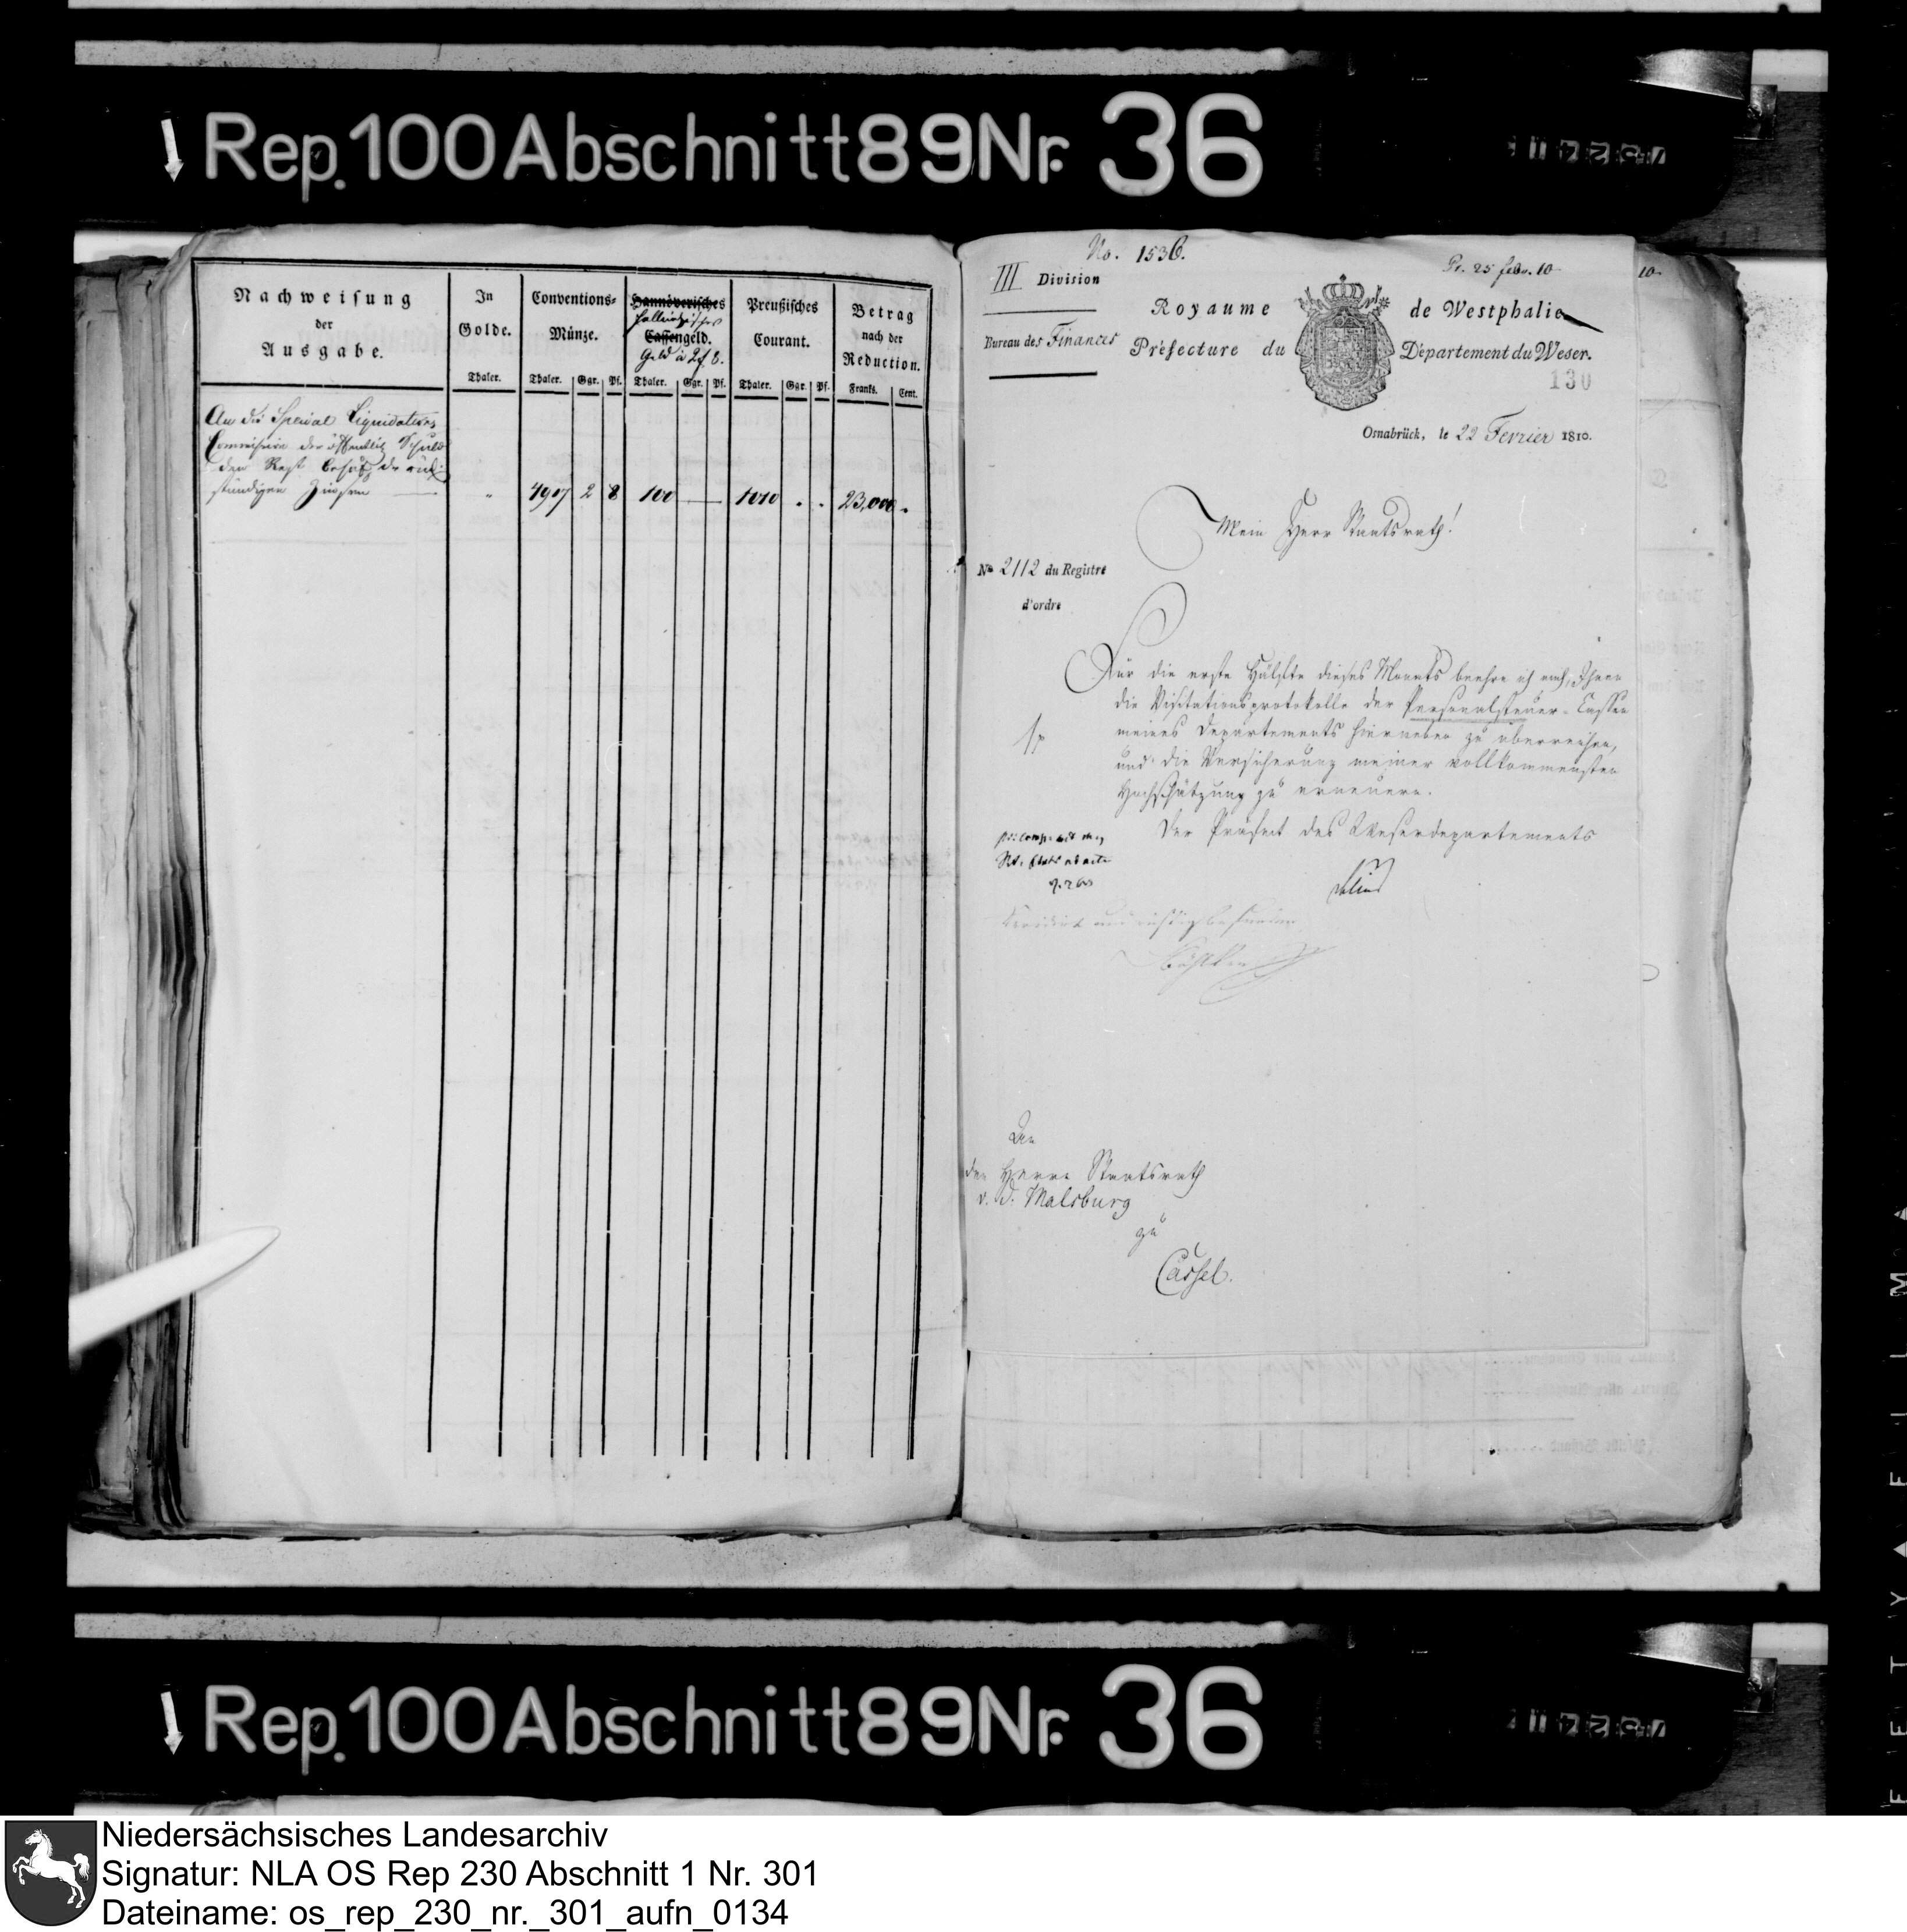 Rep. 100 Abschnitt 89 Nr. 36
Nachweisung
der
Ausgabe.
In
Golde.
Thaler.
Conventions-
Münze.
Thaler. Ggr. Pf.
Hannöverisches
Cassengeld.
Thaler. Ggr. Pf.
Preußisches
Courant.
Thaler. Ggr. Pf.
Betrag
nach der
Reduction.
Franks. Cent.
An die Special Liquidations
Commission der öffentlich Schuld
den Rest behuf der rück-
ständigen Zinsen
4907 2 8 100 1010 23,000
No. 1536.
Pr. 25 febr. 10
10.
III Division
Bureau des Finances
Royaume de Westphalie
Préfecture du Département du Weser.
130
Osnabrück, le 22 Fevrier 1810.
Mein Herr Staatsrath!
No 2112 du Registre
d'ordre
Für die erste Hälfte dieses Monats beehre ich mich, Ihnen
die Visitationsprotokolle der Personalsteuer-Cassen
meines Departements hierneben zu überreichen,
und die Versicherung meiner vollkommensten
Hochschätzung zu erneuern.
Der Präfect des Weserdepartements
Revidirt und richtig befunden
An
den Herrn Staatsrath
v. d. Malsburg
zu
Cassel.
Rep. 100 Abschnitt 89 Nr. 36
Niedersächsisches Landesarchiv
Signatur: NLA OS Rep 230 Abschnitt 1 Nr. 301
Dateiname: os_rep_230_nr._301_aufn_0134